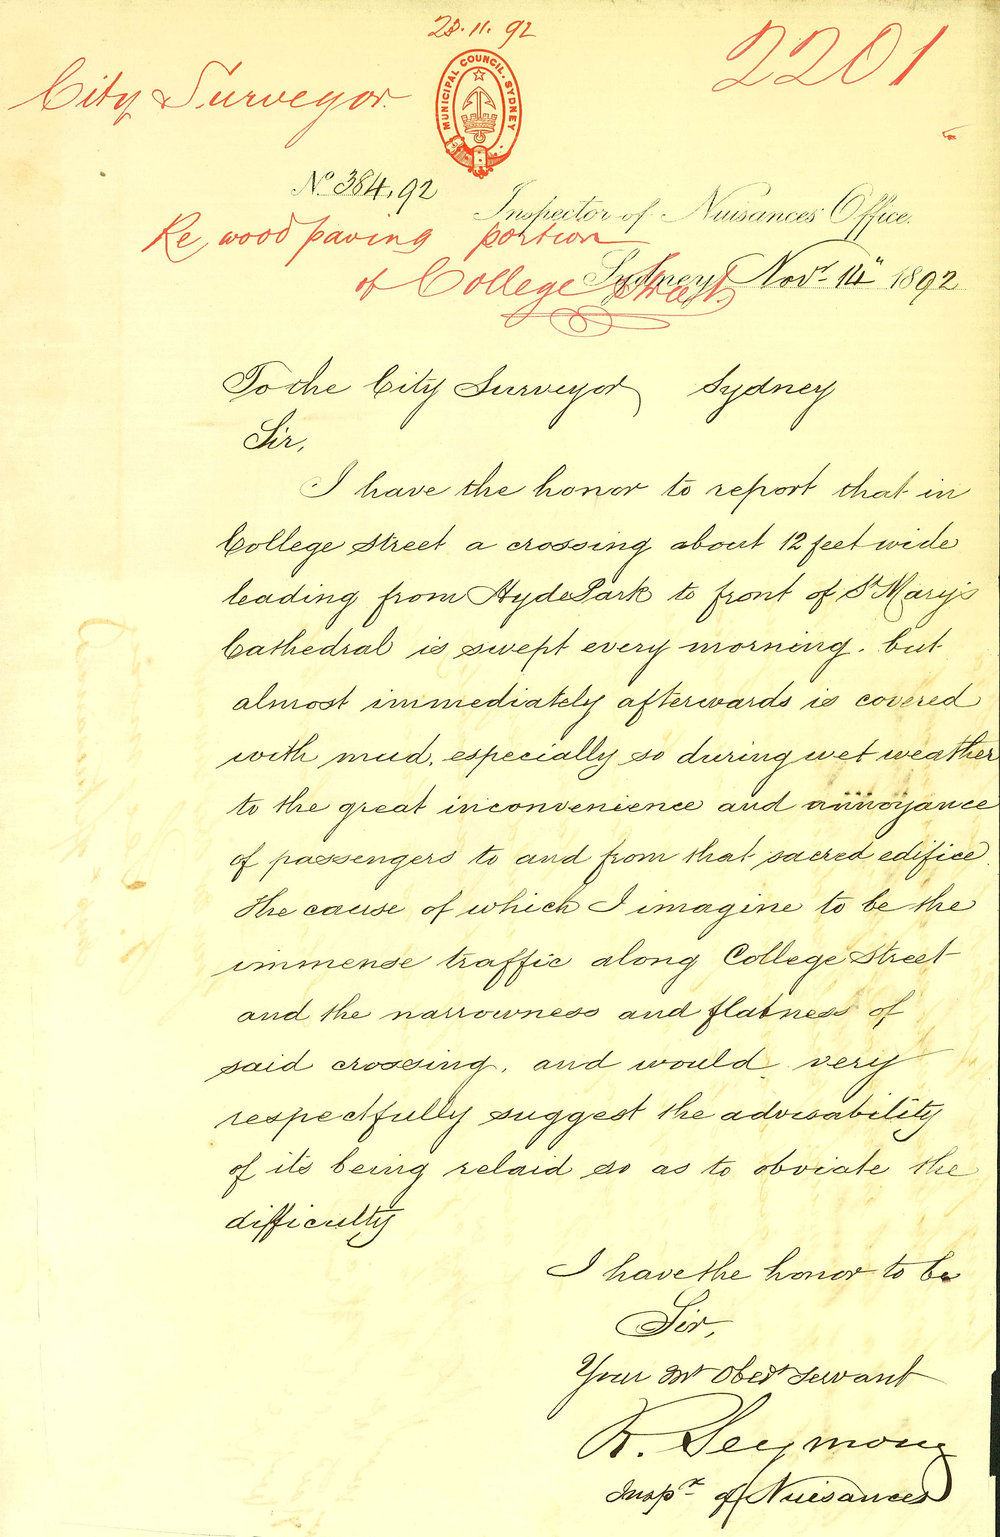 23.11.92
2201
City Surveyor.
MUNICIPAL COUNCIL. SYDNEY
No. 384.92
Inspector of Nuisances' Office.
Re wood paving portion
of College Street
Sydney, Novr. 14" 1892
To the City Surveyor, Sydney
Sir,
I have the honor to report that in
College Street a crossing about 12 feet wide
leading from Hyde Park to front of St Mary's
Cathedral is swept every morning. but
almost immediately afterwards is covered
with mud, especially so during wet weather
to the great inconvenience and annoyance
of passengers to and from that sacred edifice.
the cause of which I imagine to be the
immense traffic along College Street
and the narrowness and flatness of
said crossing, and would very
respectfully suggest the advisability
of its being relaid so as to obviate the
difficulty
I have the honor to be
Sir,
Your Mt Obedt servant
R. Seymour
Inspr. of Nuisances